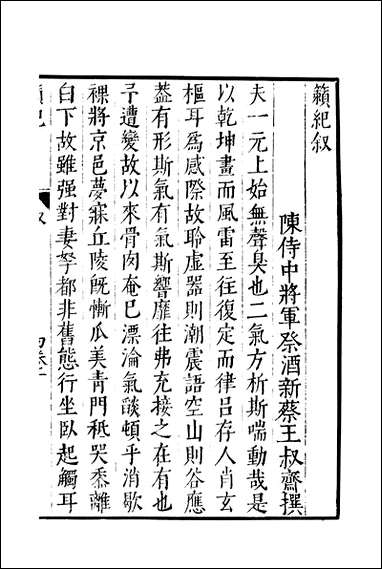 籟紀叙
陳侍中將軍祭酒新蔡王叔齋撰
夫一元上始無聲臭也二氣方析斯喘動哉是
以乾坤畫而風雷至往復定而律呂存人肖玄
樞耳爲感際故聆虛器則潮震語空山則谷應
葢有形斯氣有氣斯響靡往弗充接之在有也
予遭變故以來骨肉奄已漂淪氣燄頓乎消歇
裸將京邑夢寐丘陵旣慚瓜美青門秪哭黍離
白下故雖强對妻孥都非舊態行坐臥起觸耳
叙